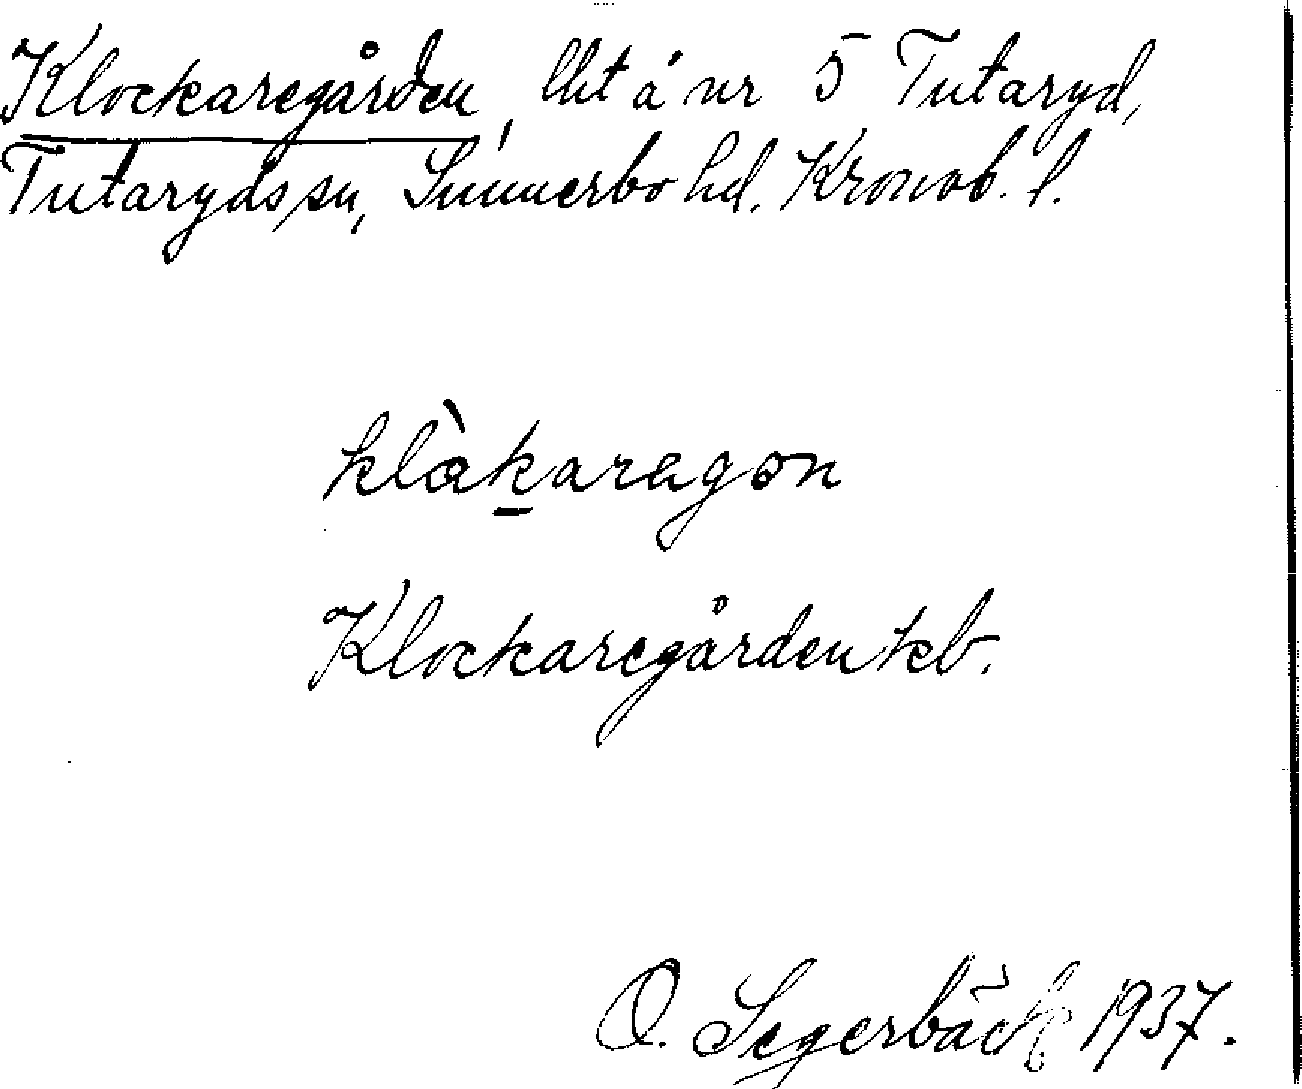 Klockaregården, lht å nr 5 Tutaryd,
Tutaryds sn, Sunnerbo hd. Kronob. l.
klàkaragon
Klockaregården kb.
O. Segerbäck 1937.